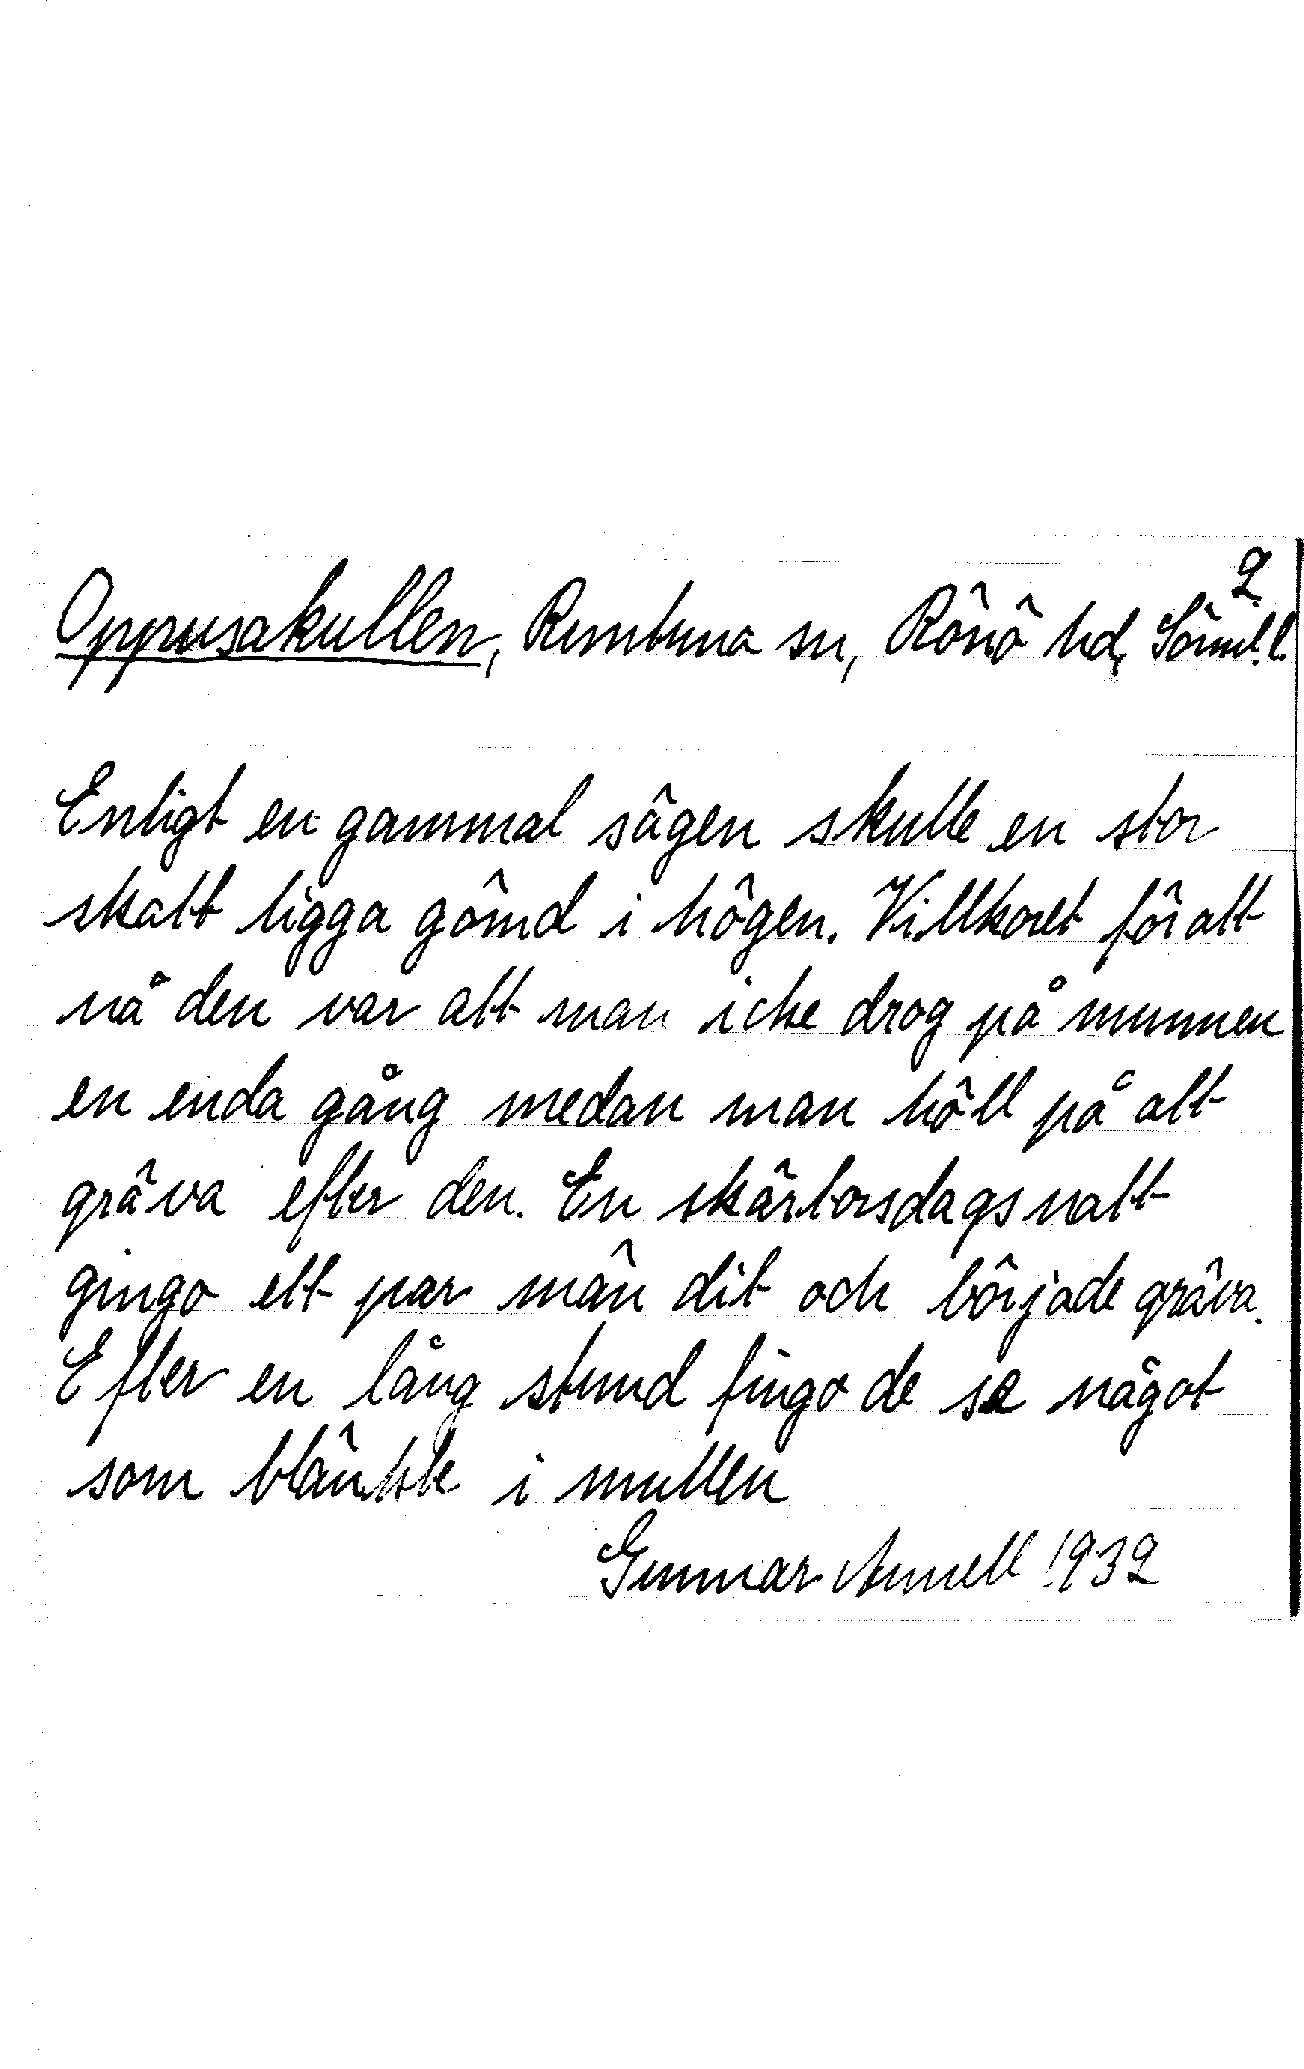 2
Oppusakullen, Runtuna sn, Rönö hd, Sörml.l.
Enligt en gammal sägen skulle en stor
skatt ligga gömd i högen. Villkoret för att
nå den var att man icke drog på munnen
en enda gång medan man höll på att
gräva efter den. En skärtorsdagsnatt
gingo ett par män dit och började gräva.
Efter en lång stund fingo de se något
som blänkte i mullen
Gunnar Annell 1932